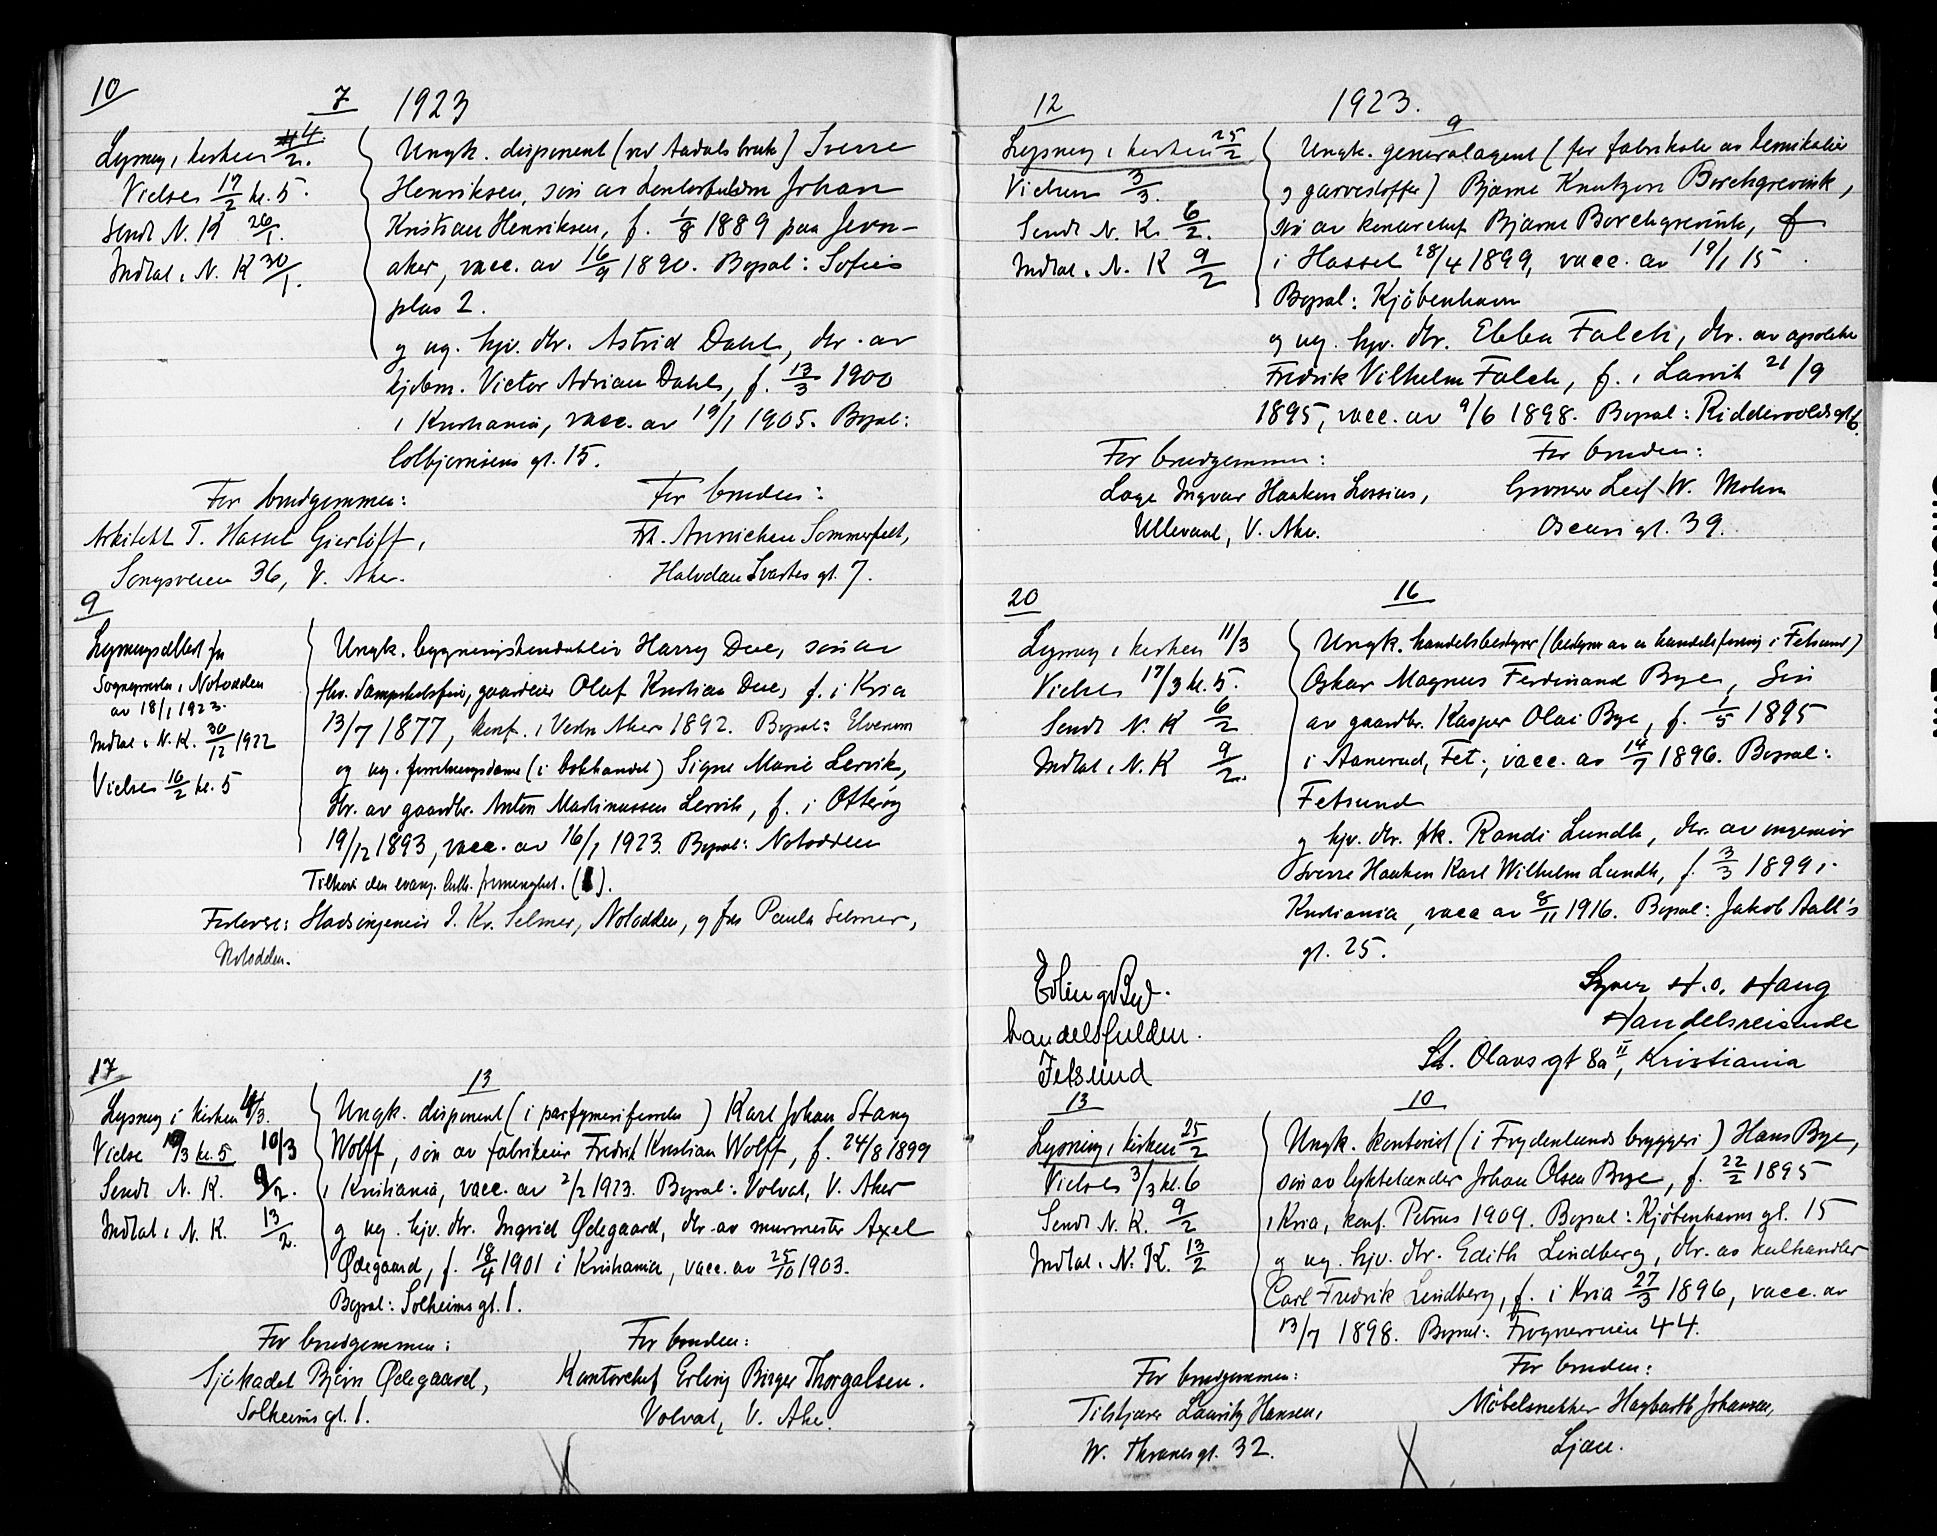 10
7 1923
Lysning i kirken 4/2.
Vielse 17/2 kl. 5.
Sendt N. K 26/1.
Indtat i N. K 30/1.
Ungk. disponent (ved Aadals bruk) Sverre
Henriksen, søn av Johan
Kristian Henriksen, f. 1/8 1889 paa Jevn-
aker, vacc. av 16/9 1890. Bopæl: Sofies
plas 2.
og ug. hjv. dtr. Astrid Dahl, dtr. av
kjøbm. Victor Adrian Dahl, f. 13/3 1900
i Kristiania, vacc. av 19/1 1905. Bopæl:
Colbjørnsens gt. 15.
For brudgommen:
Arkitekt T. Hassel Gierløff,
Songsveien 36, V. Aker.
For bruden:
Frk. Annichen Sommerfelt,
Halvdan Svartes gt. 7.
9
Lysningsattest fra
Sognepresten i Notodden
av 18/1 1923.
Indtat i N. K. 30/12 1922
Vielse 16/2 kl. 5
Ungk. Harry Due, søn av
fhv. gaardeier Olaf Kristian Due, f. i Kria
13/7 1877, konf. i Vestre Aker 1892. Bopæl: Elverum
og ug. forretningsdame (i bokhandel) Signe Marie Lervik,
dtr. av gaardbr. Anton Martinussen Lervik, f. i Otterøy
19/12 1893, vacc. av 16/1 1923. Bopæl: Notodden
Tilhører den evang. luth. menighet.
Forlovere: Stadsingeniør J. Kr. Selmer, Notodden, og fru Paula Selmer,
Notodden.
17
13
Lysning i kirken 4/3.
Vielse 10/3 kl. 5 10/3
Sendt N. K. 9/2.
Indtat i N. K. 13/2.
Ungk. disponent (i parfymeriforretn) Karl Johan Stang
Wolff, søn av fabrikeier Fredrik Kristian Wolff, f. 24/8 1899
i Kristiania, vacc. av 2/2 1923. Bopæl: Volvat, V. Aker
og ug. hjv. dtr. Ingrid Ødegaard, dtr. av murmester Axel
Ødegaard, f. 18/4 1901 i Kristiania, vacc. av 25/10 1903.
Bopæl: Solheims gt. 1.
For brudgommen:
Sjøkadet Bjørn Ødegaard,
Solheims gt. 1.
For bruden:
Kontorchef Erling Birger Thorgalsen.
Volvat, V. Aker.
12
1923.
9
Lysning i kirken 25/2
Vielsen 3/3.
Sendt N. K. 6/2.
Indtat i N. K 9/2
Ungk. generalagent (for fabrikater av kemikalier
og garvestoffer) Bjarne Knutzon Borchgrevink,
søn av kontorchef Bjarne Borchgrevink, f
i Hassel 28/4 1899, vacc. av 19/1 15.
Bopæl: Kjøbenhavn
og ug. hjv. dtr. Ebba Falck, dtr. av apoteker
Fredrik Vilhelm Falck, f. i Larvik 21/9
1895, vacc. av 9/6 1898. Bopæl: Riddervolds gt 6.
For brudgommen:
Læge Ingvar Haaken Lossius,
Ullevaal, V. Aker.
For bruden:
Grosserer Leif W. Mohn
Oscars gt. 39.
20
16
Lysning i kirken 11/3
Vielse 17/3 kl. 5.
Sendt N. K 6/2
Indtat i N. K 9/2.
Ungk. handelsbestyrer (bestyrer av en handelsforening i Fetsund)
Oskar Magnus Ferdinand Bye, søn
av gaardbr. Kasper Olai Bye, f. 1/5 1895
i Aanerud, Fet., vacc. av 14/7 1896. Bopæl:
Fetsund
og hjv. dtr. frk. Randi Lundh, dtr. av ingeniør
Sverre Haaken Karl Wilhelm Lundh, f. 3/3 1899 i
Kristiania, vacc av 8/11 1916. Bopæl: Jakob Aall's
gt. 25.
Erling Bye.
handelsfuldm.
Fetsund
Syver H. O. Hang
Handelsreisende
St. Olavs gt 8a II, Kristiania
13
10
Lysning i kirken 25/2
Vielse 3/3 kl. 6
Sendt N. K. 9/2
Indtat i N. K. 13/2
Ungk. kontorist (i Frydenlunds bryggeri) Hans Bye,
søn av lyktetænder Johan Olsen Bye, f. 22/2 1895
i Kria, konf. Petrus 1909. Bopæl: Kjøbenhavns gt. 15
og ug. hjv. dtr. Edith Lindberg, dtr. av kulhandler
Carl Fredrik Lindberg, f. i Kria 27/3 1896, vacc. av
13/7 1898. Bopæl: Frognerveien 44.
For brudgommen:
Tilskjærer Lauritz Hansen,
W. Thranes gt. 32.
For bruden:
Møbelsnekker Hagbarth Johansen,
Ljan.